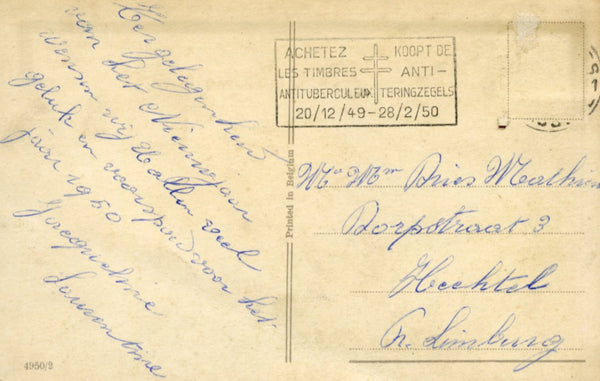 Ter gelegenheid
van het Nieuwjaar
wensen wij U allen veel
geluk en voorspoed voor het
jaar 1950
Jacqueline
ACHETEZ KOOPT DE
LES TIMBRES ANTI-
ANTITUBERCULEUX TERINGZEGELS
20/12/49-28/2/50
Printed in Belgium
Mr Mm Dries Mathieu
Dorpstraat 3
Hechtel
Pr. Limburg
4950/2